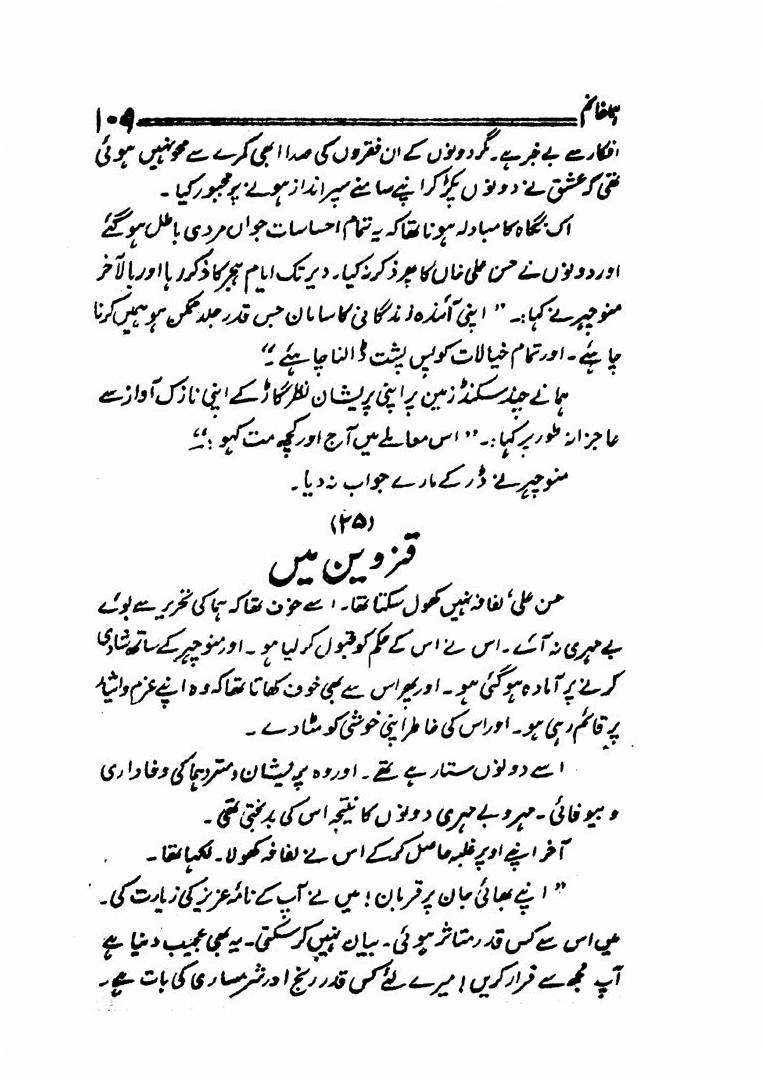 ہما خانم ۱۰۹
افکار سے بے خبر ہے۔ مگر دونوں کے ان فقروں کی صدا ابھی کمرے سے محو نہیں ہوئی
تھی کہ عشق نے دونوں پکڑ کر اپنے سامنے سپر انداز ہونے پر مجبور کیا۔
اک نگاہ کا مبادلہ ہونا تھا کہ یہ تمام احساسات جواں مردی باطل ہو گئے
اور دونوں نے حسن علی خاں کا پھر ذکر نہ کیا۔ دیر تک ایام ہجر کا ذکر رہا اور بالآخر
منوچہر نے کہا:۔ "اپنی آئندہ زندگانی کا سامان جس قدر جلد ممکن ہو ہمیں کرنا
چاہئے۔ اور تمام خیالات کو پس پشت ڈالنا چاہئے۔"
ہما نے چند سکنڈ زمین پر اپنی پریشان نظر گاڑ کے اپنی نازک آواز سے
عاجزانہ طور پر کہا:۔ "اس معاملے میں آج اور کچھ مت کہو۔"
منوچہر نے ڈر کے مارے جواب نہ دیا۔
(۲۵)
قزوین میں
حسن علی، لفافہ نہیں کھول سکتا تھا۔ اسے خوف تھا کہ ہما کی تحریر سے بوئے
بے مہری نہ آئے۔ اس نے اس کے حکم کو قبول کر لیا ہو۔ اور منوچہر کے ساتھ شادی
کرنے پر آمادہ ہو گئی ہو۔ اور پھر اس سے بھی خوف کھاتا تھا کہ وہ اپنے عزم و ایثار
پر قائم رہی ہو۔ اور اس کی خاطر اپنی خوشی کو مٹا دے۔
اسے دونوں ستا رہے تھے۔ اور وہ پریشان و متردد ہما کی وفاداری
و بیوفائی۔ مہر و بے مہری دونوں کا نتیجہ اس کی بدبختی تھی۔
آخر اپنے اوپر غلبہ حاصل کر کے اس نے لفافہ کھولا۔ لکھا تھا۔
"اپنے بھائی جان پر قربان! میں نے آپ کے نامۂ عزیز کی زیارت کی۔
میں اس سے کس قدر متاثر ہوئی۔ بیان نہیں کر سکتی۔ یہ بھی عجیب دنیا ہے
آپ مجھ سے فرار کریں! میرے لئے کس قدر رنج اور شرمساری کی بات ہے۔